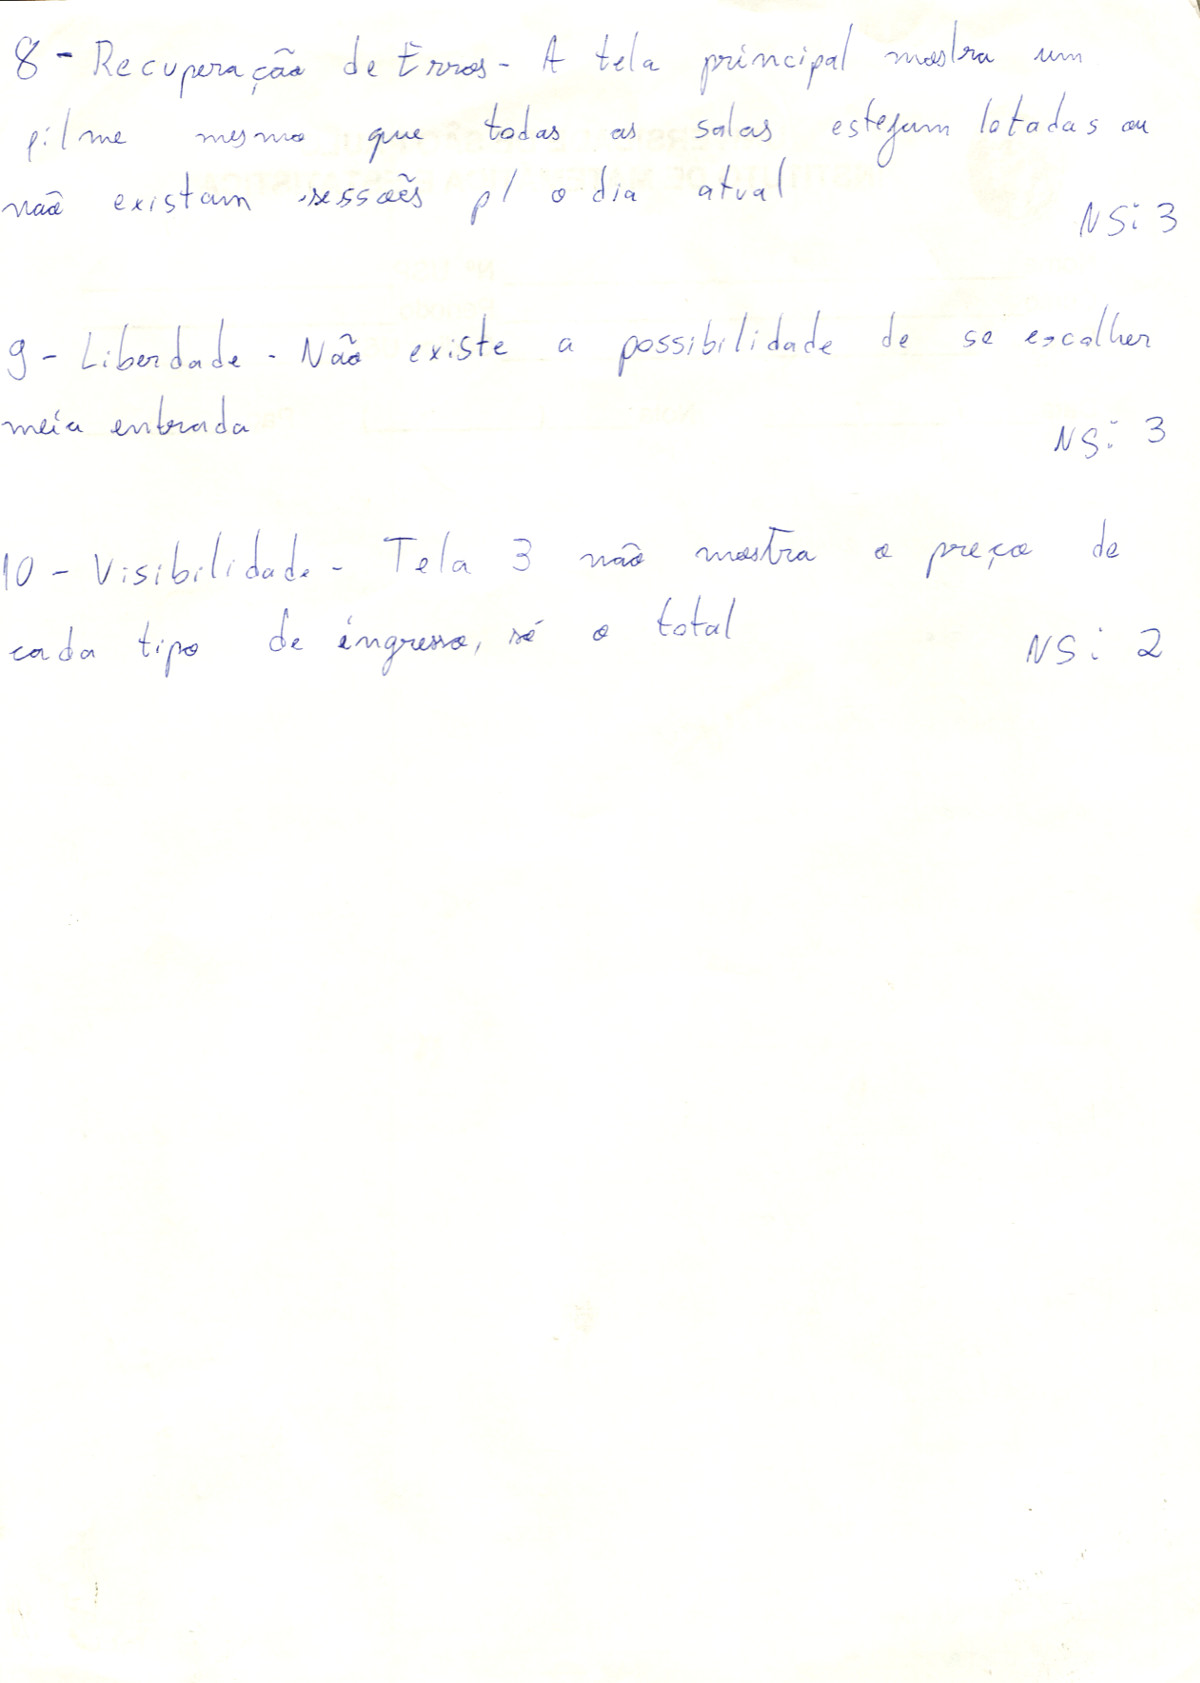 8 - Recuperação de Erros - A tela principal mostra um
filme mesmo que todas as salas estejam lotadas ou
não existam sessões p/ o dia atual
NS: 3
9 - Liberdade - Não existe a possibilidade de se escolher
meia entrada
NS: 3
10 - Visibilidade - Tela 3 não mostra o preço de
cada tipo de ingresso, só o total
NS: 2